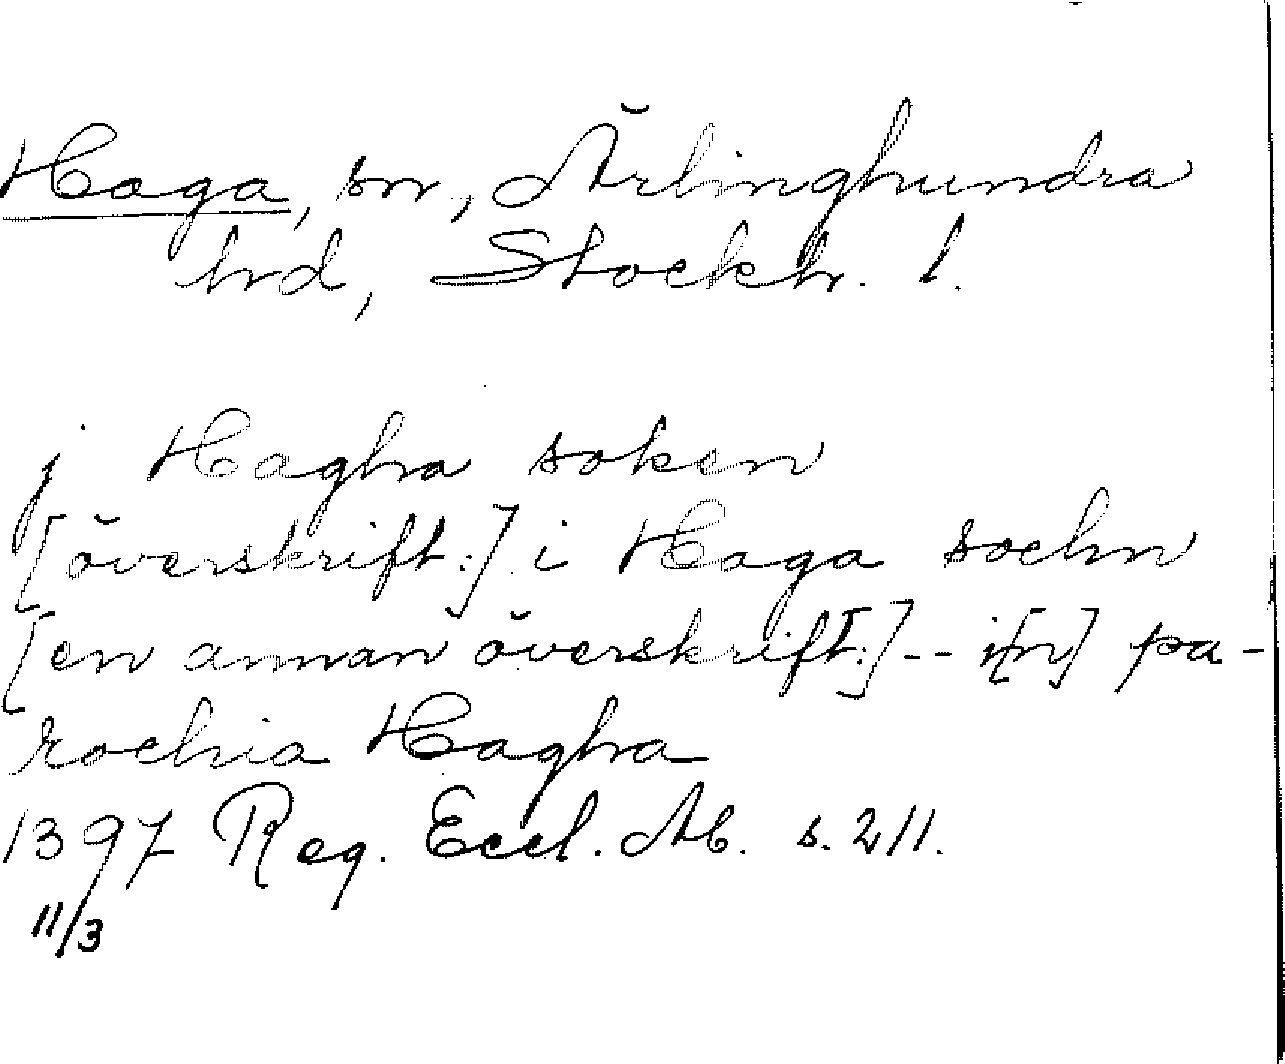 Haga, sn, Ärlinghundra
hd, Stockh. l.
j Hagha soken
[överskrift:] i Haga sochn
[en annan överskrift:] -- i[n] pa-
rochia Hagha
1397 Reg. Eccl. Ab. s. 211.
11/3